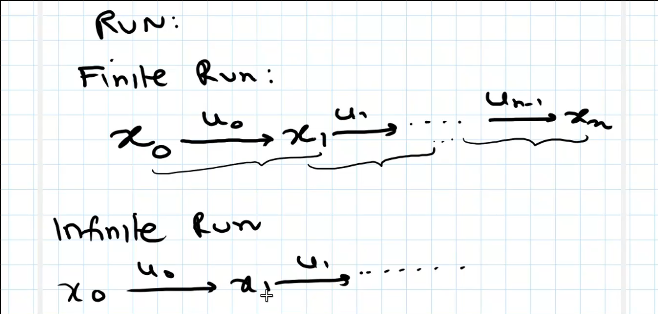 RUN:
Finite Run:
x₀ —u₀→ x₁ —u₁→ ..... —uₙ₋₁→ xₙ
Infinite Run
x₀ —u₀→ x₁ —u₁→ .......